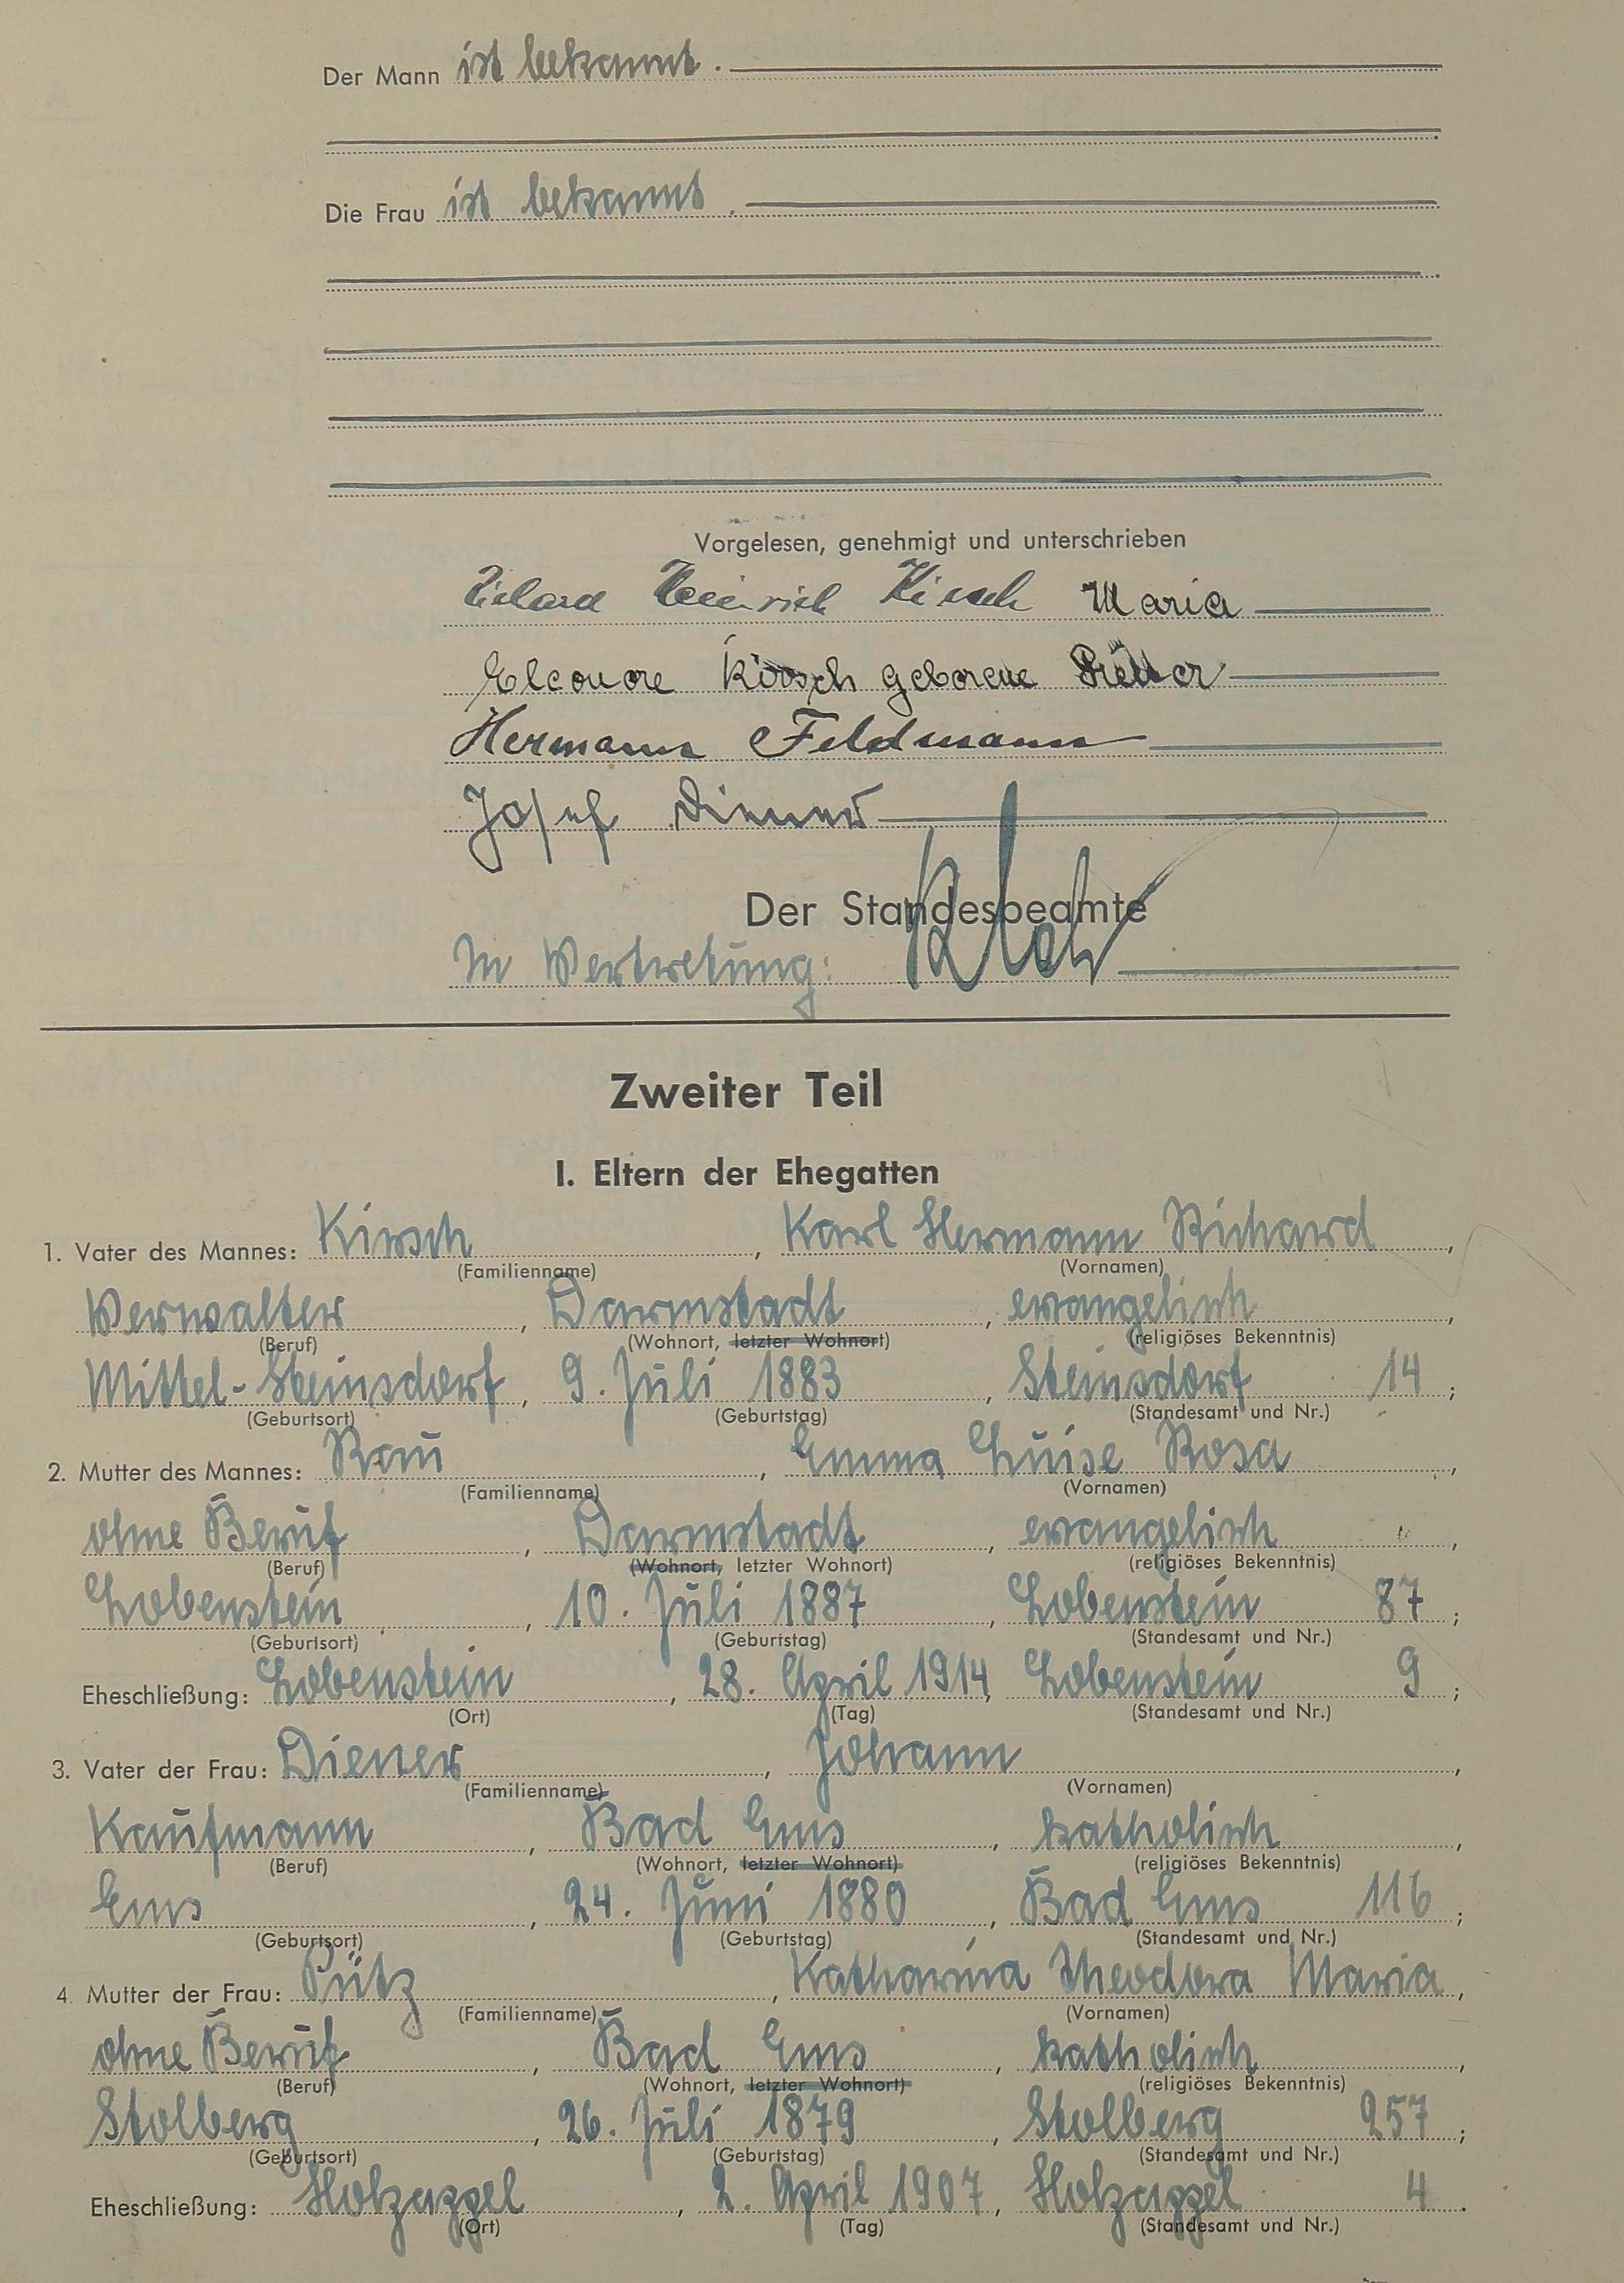 Der Mann ist bekannt.
Die Frau ist bekannt.
Vorgelesen, genehmigt und unterschrieben
Richard Heinrich Kirsch Maria
Eleonore Kirsch geborene
Hermann Feldmann
Josef Diener
Der Standesbeamte
In Vertretung:
Zweiter Teil
I. Eltern der Ehegatten
1. Vater des Mannes: Kirsch, Karl Hermann Richard,
(Familienname) (Vornamen)
Verwalter, Darmstadt, evangelisch,
(Beruf) (Wohnort, letzter Wohnort) (religiöses Bekenntnis)
Mittel-Steinsdorf, 9. Juli 1883, Steinsdorf 14;
(Geburtsort) (Geburtstag) (Standesamt und Nr.)
2. Mutter des Mannes: Rau, Emma Luise Rosa,
(Familienname) (Vornamen)
ohne Beruf, Darmstadt, evangelisch,
(Beruf) (Wohnort, letzter Wohnort) (religiöses Bekenntnis)
Lobenstein, 10. Juli 1887, Lobenstein 87;
(Geburtsort) (Geburtstag) (Standesamt und Nr.)
Eheschließung: Lobenstein, 28. April 1914, Lobenstein 9;
(Ort) (Tag) (Standesamt und Nr.)
3. Vater der Frau: Diener, Johann,
(Familienname) (Vornamen)
Kaufmann, Bad Ems, katholisch,
(Beruf) (Wohnort, letzter Wohnort) (religiöses Bekenntnis)
Ems, 24. Juni 1880, Bad Ems 116;
(Geburtsort) (Geburtstag) (Standesamt und Nr.)
4. Mutter der Frau: Pütz, Katharina Theodora Maria,
(Familienname) (Vornamen)
ohne Beruf, Bad Ems, katholisch,
(Beruf) (Wohnort, letzter Wohnort) (religiöses Bekenntnis)
Stolberg, 26. Juli 1879, Stolberg 257;
(Geburtsort) (Geburtstag) (Standesamt und Nr.)
Eheschließung: Holzappel, 2. April 1907, Holzappel 4.
(Ort) (Tag) (Standesamt und Nr.)